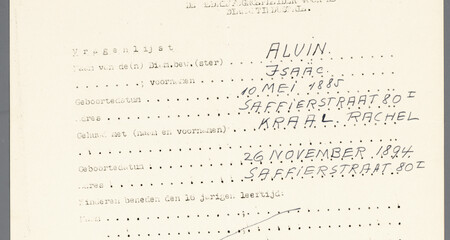 Vragenlijst
Naam van de(n) Diam.bew.(ster) ALVIN.
voornamen ISAÄC.
Geboortedatum 10 MEI 1885
Adres SAFFIERSTRAAT 80 I
Gehuwd met (naam en voornamen) KRAAL RACHEL
Geboortedatum 26 NOVEMBER 1894
Adres SAFFIERSTRAAT 80 I
Kinderen beneden den 16 jarigen leeftijd:
Naam